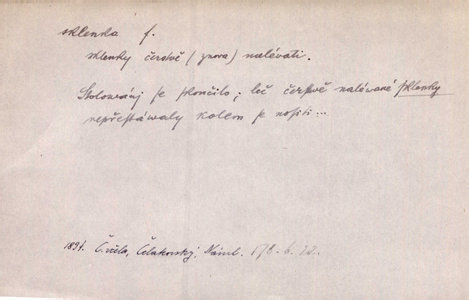 sklenka f.
sklenky čerstvě (znova) nalévati.
Stolování se skončilo; leč čerstvě nalévané sklenky
nepřestávaly kolem se nositi...
1834. Č. včela, Čelakovský, 178. b. 22.